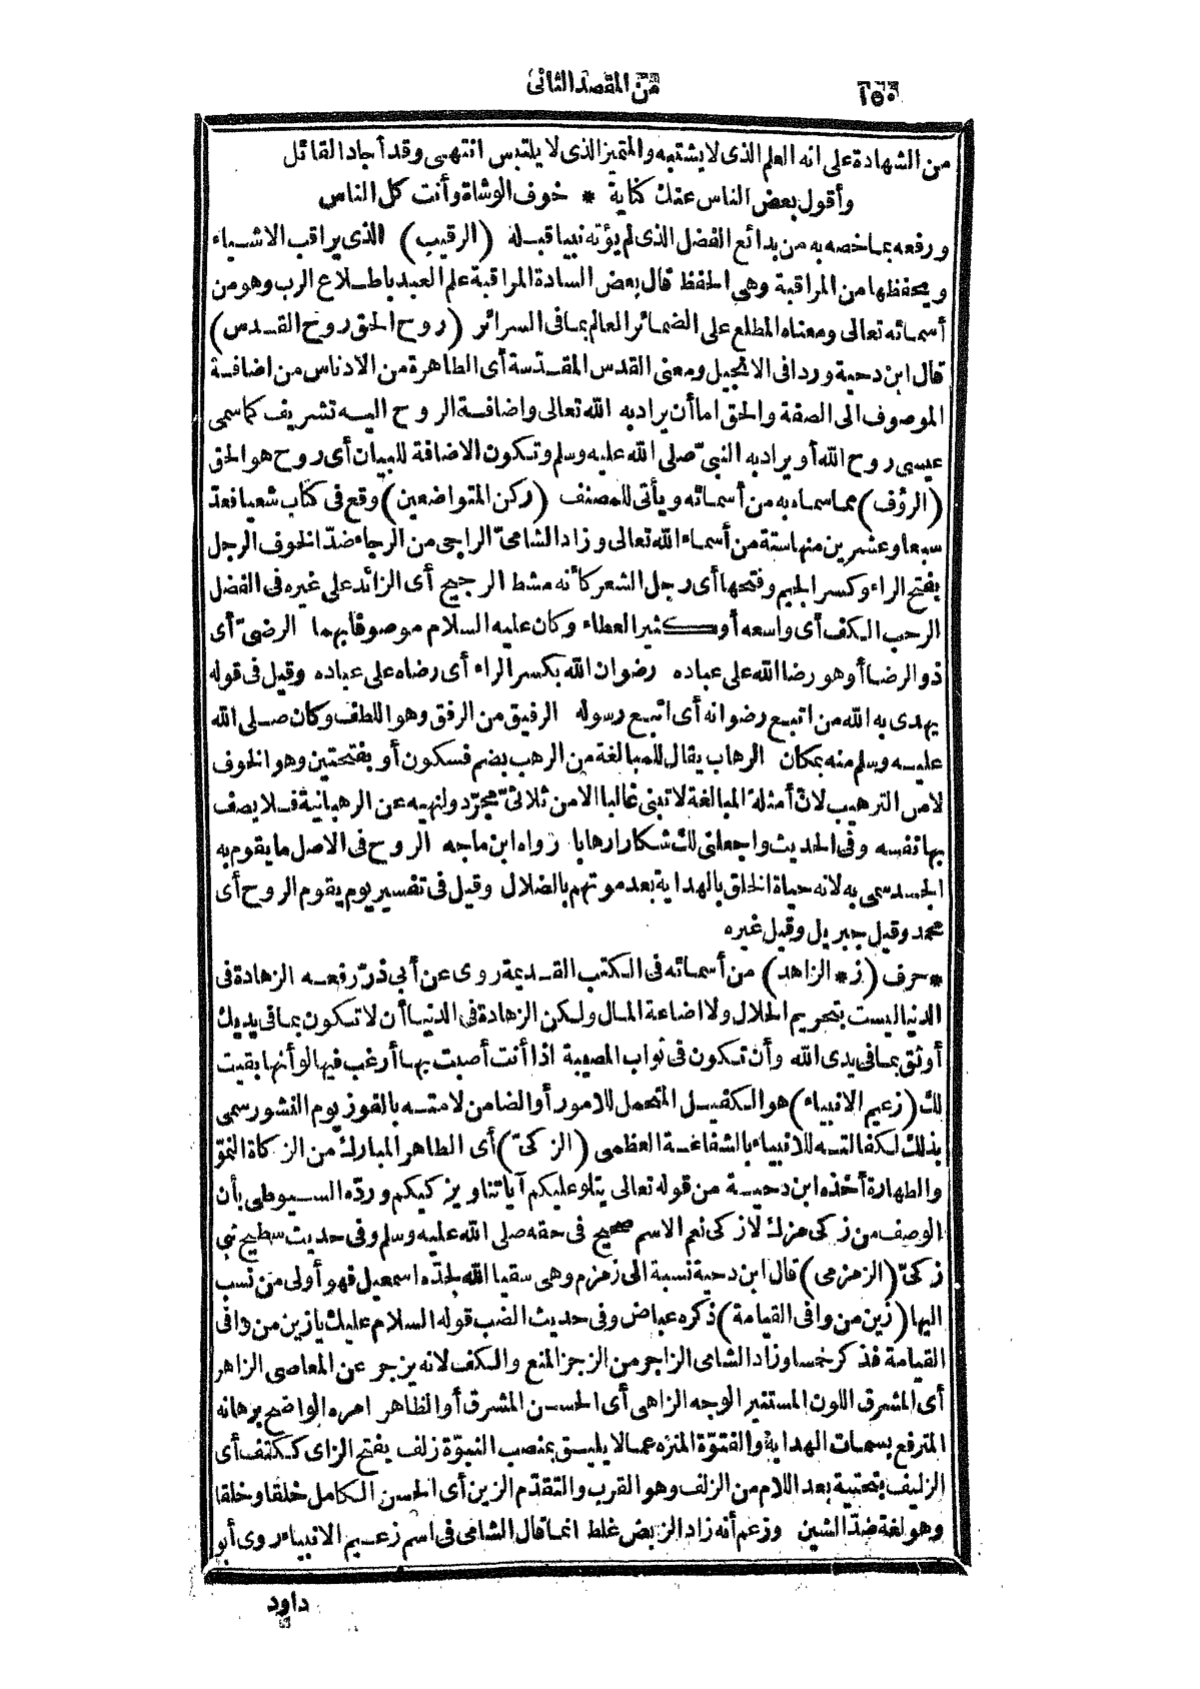 ١٥٠
من المقصد الثانى
من الشهادة على انه العلم الذى لا يشتبه والمتميز الذى لا يلتبس انتهى وقد أجاد القائل
وأقول بعض الناس عنك كناية * خوف الوشاة وأنت كل الناس
ورفعه بما خصه به من بدائع الفضل الذى لم يؤته نبيا قبله (الرقيب) الذى يراقب الاشياء
ويحفظها من المراقبة وهى الحفظ قال بعض السادة المراقبة علم العبد باطلاع الرب وهو من
أسمائه تعالى ومعناه المطلع على الضمائر العالم بما فى السرائر (روح الحق روح القدس)
قال ابن دحية ورد افى الانجيل ومعنى القدس المقدّسة أى الطاهرة من الادناس من اضافة
الموصوف الى الصفة والحق اما أن يراد به الله تعالى واضافة الروح اليه تشريف كما سمى
عيسى روح الله أو يراد به النبىّ صلى الله عليه وسلم وتكون الاضافة للبيان أى روح هو الحق
(الرؤف) مما سماه به من أسمائه ويأتى للمصنف (ركن المتواضعين) وقع فى كتاب شعيا فعدّ
سبعا وعشرين منها ستة من أسماء الله تعالى وزاد الشامىّ الراجى من الرجاء ضدّ الخوف الرجل
بفتح الراء وكسر الجيم وفتحها أى رجل الشعر كأنه مشط الرجيح أى الزائد على غيره فى الفضل
الرحب الكف أى واسعه أو كثير العطاء وكان عليه السلام موصوفا بهما الرضىّ أى
ذو الرضا أو هو رضا الله على عباده رضوان الله بكسر الراء أى رضاه على عباده وقيل فى قوله
يهدى به الله من اتبع رضوانه أى اتبع رسوله الرفيق من الرفق وهو اللطف وكان صلى الله
عليه وسلم منه بمكان الرهاب يقال للمبالغة من الرهب بضم فسكون أو بفتحتين وهو الخوف
لامن الترهيب لانّ أمثلة المبالغة لا تبنى غالبا الا من ثلاثىّ مجرّد ولنهيه عن الرهبانية فلا يصف
بها نفسه وفى الحديث واجعلنى لك شكارا رهابا رواه ابن ماجه الروح فى الاصل ما يقوم به
الجسد سمى به لانه حياة الخلق بالهداية بعد موتهم بالضلال وقيل فى تفسير يوم يقوم الروح أى
محمد وقيل جبريل وقيل غيره
* حرف (ز* الزاهد) من أسمائه فى الكتب القديمة روى عن أبى ذرّ رفعه الزهادة فى
الدنيا ليست بتحريم الحلال ولا اضاعة المال ولكن الزهادة فى الدنيا أن لا تكون بما فى يديك
أوثق بما فى يدى الله وأن تكون فى ثواب المصيبة اذا أنت أصبت بها أرغب فيها لو أنها بقيت
لك (زعيم الانبياء) هو الكفيل المتحمل للامور أو الضامن لامته بالفوز يوم النشور سمى
بذلك لكفالته للانبياء بالشفاعة العظمى (الزكىّ) أى الطاهر المبارك من الزكاة النموّ
والطهارة أخذه ابن دحية من قوله تعالى يتلو عليكم آياتنا ويزكيكم وردّه السيوطى بأن
الوصف من زكى مزك لا زكى نعم الاسم صحيح فى حقه صلى الله عليه وسلم وفى حديث سطيح نبى
زكىّ (الزمزمى) قال ابن دحية نسبة الى زمزم وهى سقيا الله لجدّه اسمعيل فهو أولى من نسب
اليها (زين من وافى القيامة) ذكره عياض وفى حديث الضب قوله السلام عليك يا زين من وافى
القيامة فذكر خمسا وزاد الشامى الزاجر من الزجر المنع والكف لانه يزجر عن المعاصى الزاهر
أى المشرق اللون المستنير الوجه الزاهى أى الحسن المشرق أو الظاهر امره الواضح برهانه
المترفع بسمات الهداية والفتوّة المنزه عما لا يليق بمنصب النبوّة زلف بفتح الزاى ككتف أى
الزليف بتحتية بعد اللام من الزلف وهو القرب والتقدّم الزين أى الحسن الكامل خلقا وخلقا
وهو لغة ضدّ الشين وزعم أنه زاد الزبض غلط انما قال الشامى فى اسم زعيم الانبياء روى أبو
داود